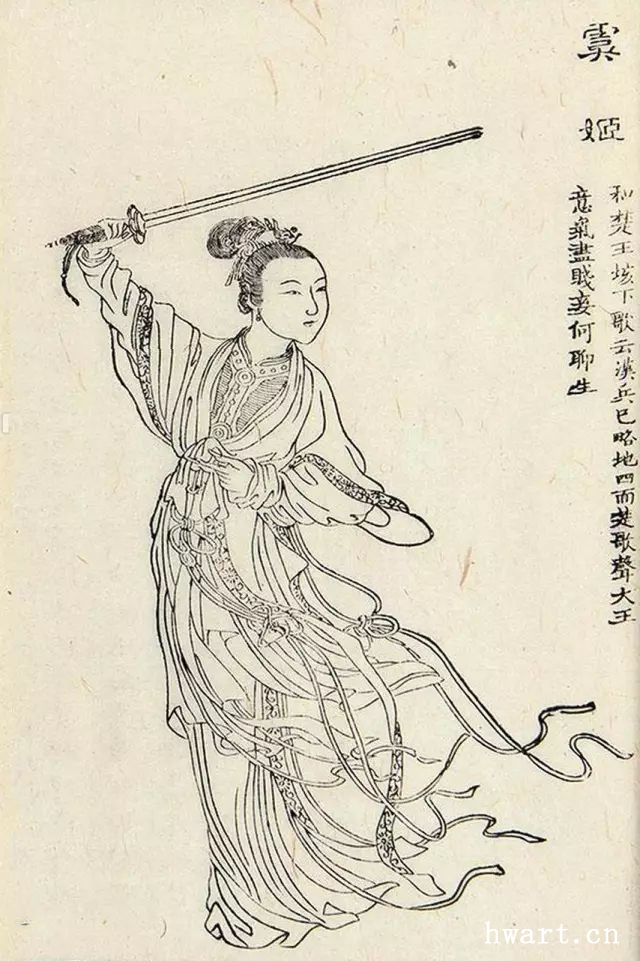 虞姬
和楚王垓下歌云漢兵已略地四面楚歌聲大王
意氣盡賤妾何聊生
hwart.cn